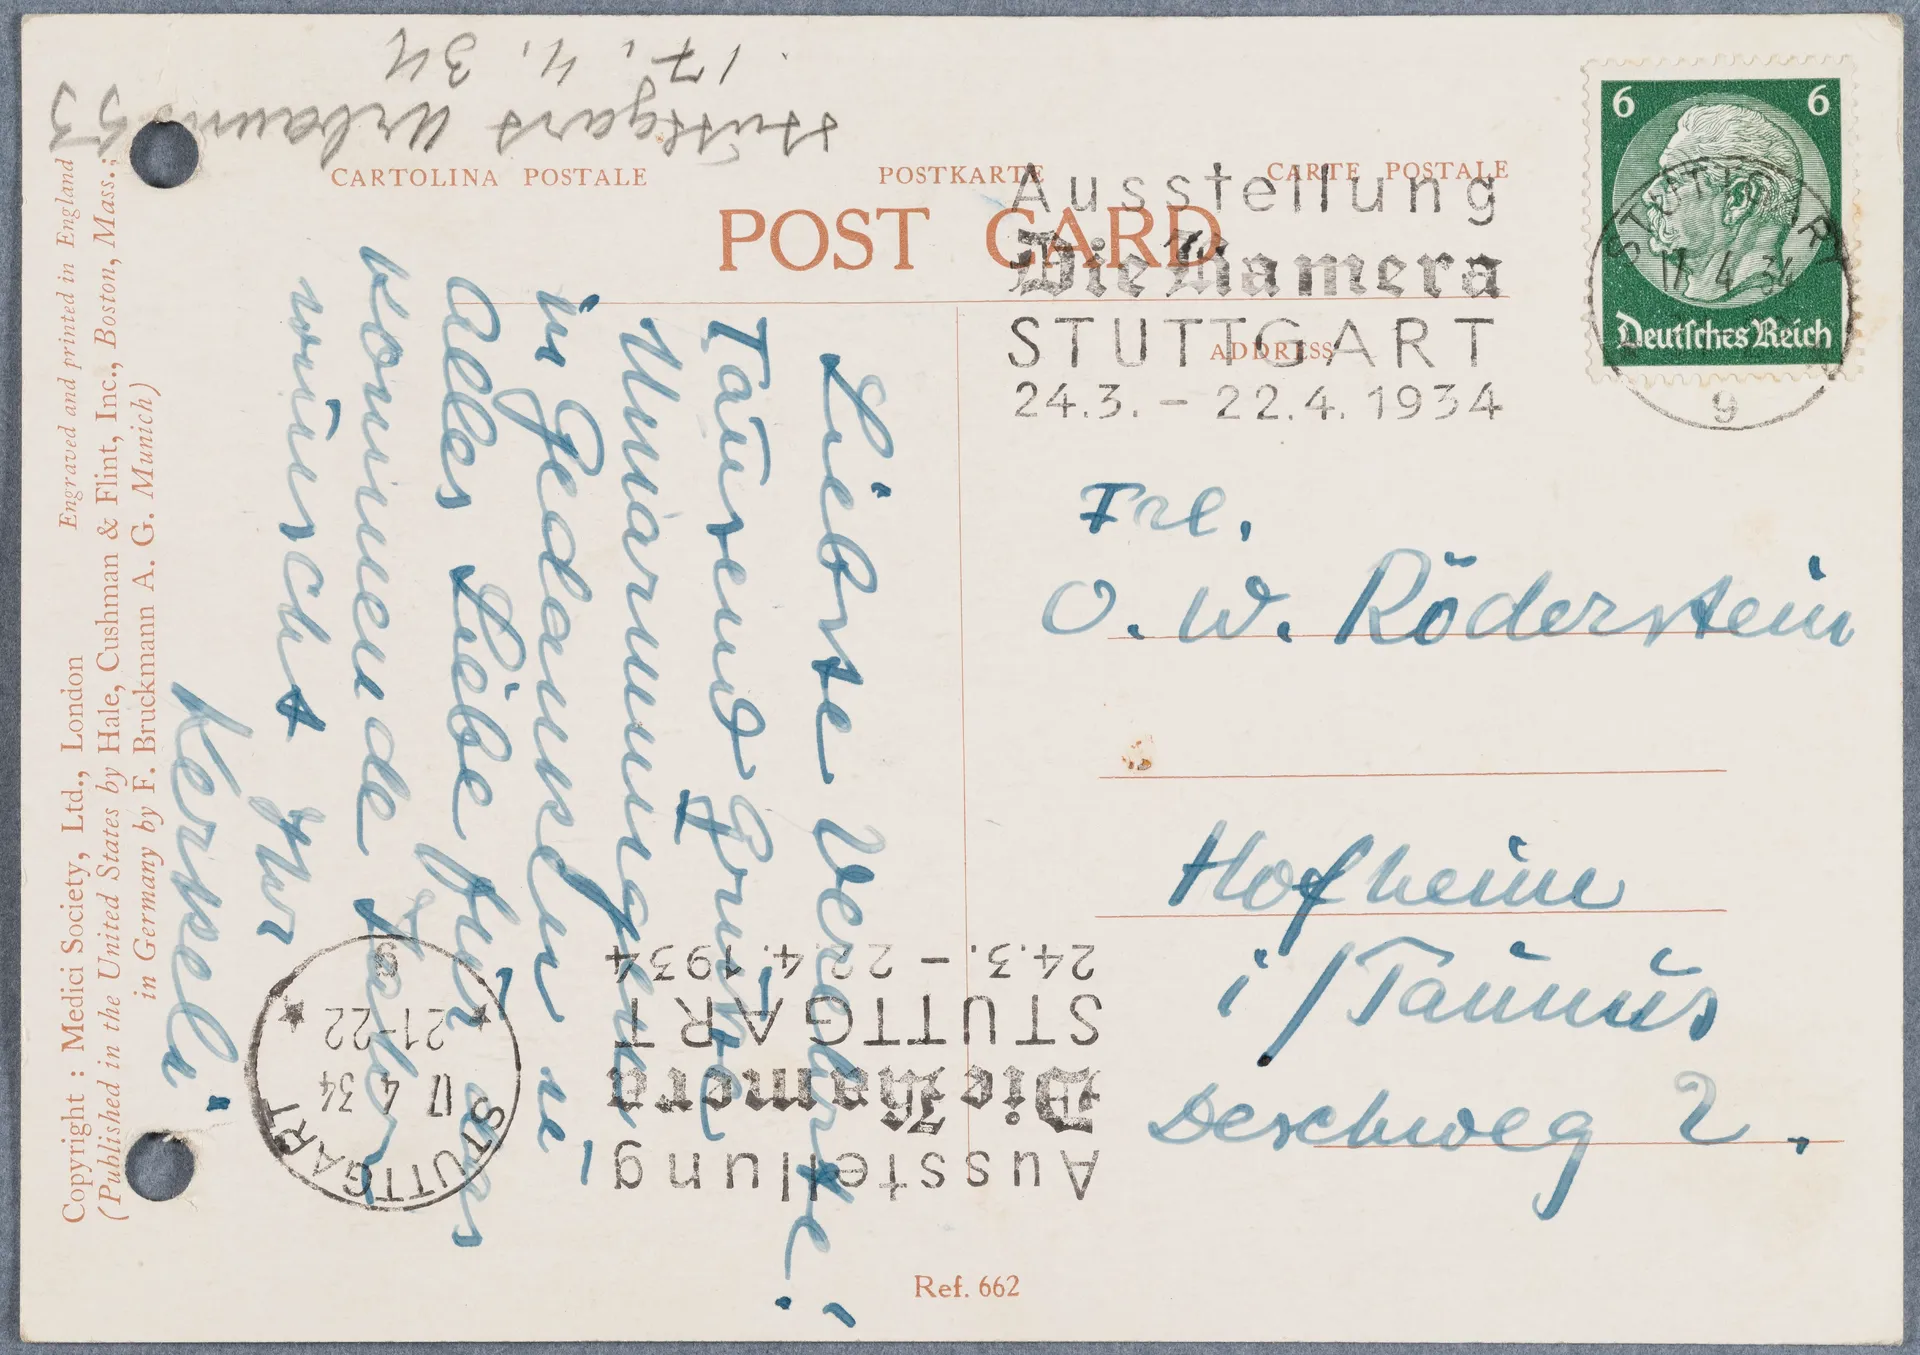 Stuttgart Urbanstr 53
17.4.34
CARTOLINA POSTALE POSTKARTE CARTE POSTALE
POST CARD
ADDRESS
6 6
Deutsches Reich
STUTTGART
17 4 34
9
Ausstellung
Die Kamera
STUTTGART
24.3. – 22.4.1934
Liebste Verehrte!
Tausend Grüße
Umarmungen
in Gedanken
Alles Liebe für das
kommende
wünscht Ihr
Frl.
O. W. Röderstein
Hofheim
i/Taunus
Deschweg 2.
Ausstellung
Die Kamera
STUTTGART
24.3. – 22.4.1934
STUTTGART
17 4 34
21-22
9
Engraved and printed in England
Copyright : Medici Society, Ltd., London
(Published in the United States by Hale, Cushman & Flint, Inc., Boston, Mass.;
in Germany by F. Bruckmann A. G. Munich)
Ref. 662